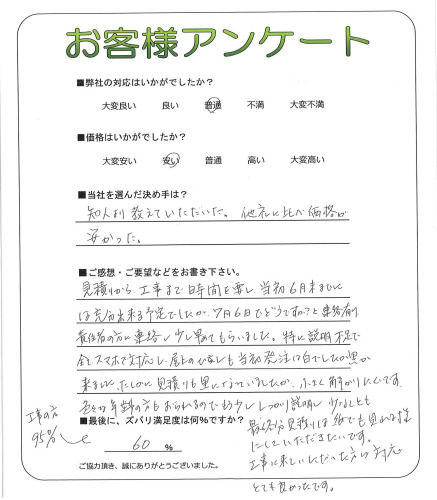 お客様アンケート
■弊社の対応はいかがでしたか?
大変良い 良い 普通 不満 大変不満
■価格はいかがでしたか?
大変安い 安い 普通 高い 大変高い
■当社を選んだ決め手は?
知人より教えていただいた。他社に比べ価格が
安かった。
■ご感想・ご要望などをお書き下さい。
見積りから、工事まで時間を要し、当初6月末までに
は充分出来る予定でしたが、7月6日でどうですかと連絡有り
責任者の方に連絡し少し早めてもらいました。特に説明不足で
全てスマホで対応し、屋上の 当初発注は白でしたが黒が
来ました。たしかに見積りも黒になっていましたが、小さく解かりにくいです
色々な年齢の方もおられるのでもう少ししっかり説明し少なくとも
■最後に、ズバリ満足度は何%ですか?
60 %
最終見積りは紙でも見れる様
にしていただきたいです。
工事に来ていただいた方は対応
とても良かったです。
工事の方
95%
ご協力頂き、誠にありがとうございました。